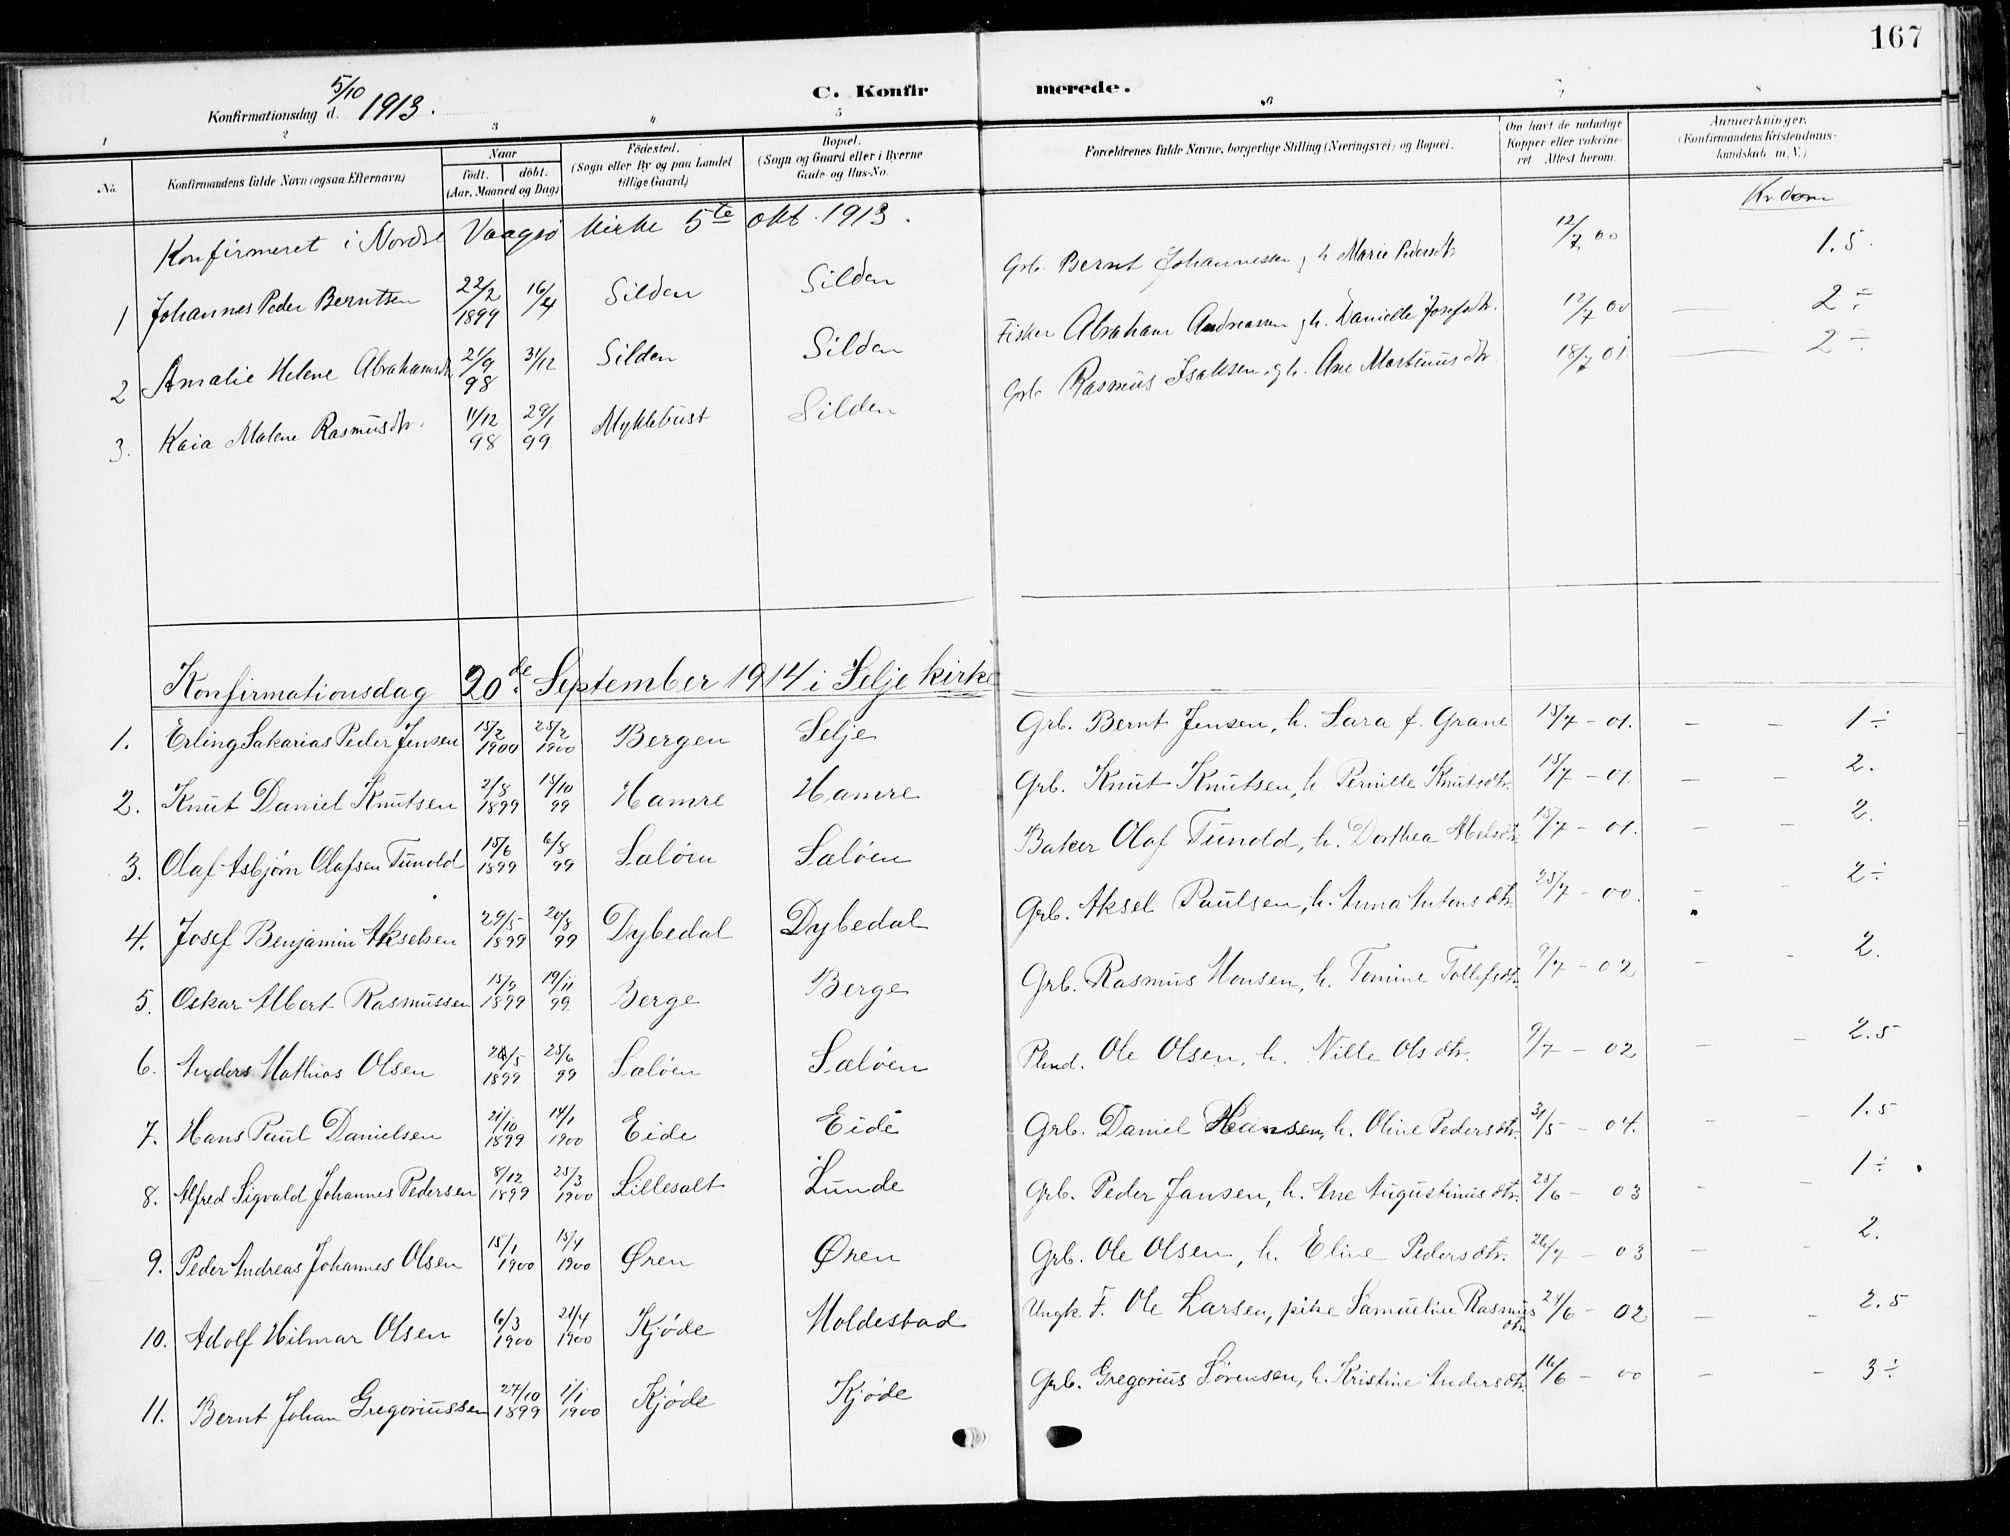 167
C. Konfirmerede.
Konfirmationsdag d. 5/10 1913.
1 2 3 4 5 6 7 8
No. Konfirmandens fulde Navn (ogsaa Efternavn) Naar födt. döbt. (Aar, Maaned og Dag) Födested. (Sogn eller By og paa Landet tillige Gaard) Bopæl. (Sogn og Gaard eller i Byerne Gade og Hus-No. Forældrenes fulde Navne, borgerlige Stilling (Næringsvei) og Bopæl. Om havt de naturlige Kopper eller vakcineret Attest herom. Anmærkninger. (Konfirmandens Kristendomskundskab m. V.)
Kr.dom
Konfirmeret i Nordre Vaagsö Kirke 5te Okt. 1913.
1 Johannes Peder Berntsen 22/2 1899 16/4 Silden Silden Grb. Bernt Johannessen og h. Marie Pedersdtr. 12/7 00 1.5
2 Amalie Helene Abrahamsdtr. 21/9 98 31/12 Silden Silden Fisker Abraham Andreassen og h. Danielle Josefsdtr. 12/7 00 — 2 ÷
3. Kaia Malene Rasmusdtr. 11/12 98 29/1 99 Myklebust Silden Grb. Rasmus Isaksen og h. Ane Martinusdtr. 18/7 01 — 2 ÷
Konfirmationsdag 20de September 1914 i Selje kirke
1. Erling Sakarias Peder Jensen 15/2 1900 25/2 1900 Bergen Selje Grb. Bernt Jensen, h. Sara f. Grane 15/7 - 01. - - 1 ÷
2. Knut Daniel Knutsen 2/8 1899 15/10 99 Hamre Hamre Grb. Knut Knutsen, h. Pernille Knutsdtr. 15/7 - 01. - - 2.
3. Olaf Asbjørn Olafsen Tunold 15/6 1899 6/8 99 Saløen Saløen Baker Olaf Tunold, h. Dorthea Abelsdtr. 15/7 - 01. - - 2.
4. Josef Benjamin Akselsen 29/5 1899 20/8 99 Dybedal Dybedal Grb. Aksel Paulsen, h. Anna Antonsdtr. 25/7 - 00. - - 2 ÷
5. Oskar Albert Rasmussen 15/9 1899 19/11 99. Berge Berge Grb. Rasmus Hansen, h. Tomine Tollefsdtr. 9/7 - 02 - - 2.
6. Anders Mathias Olsen 1899 25/6 99 Saløen Saløen Ole Olsen, h. Nille Olsdtr. 9/7 - 02 - - 2.5
7. Hans Paul Danielsen 21/10 1899 14/1 1900 Eide Eide Grb. Daniel Hansen, h. Oline Pedersdtr. 31/5 - 04. - - 1.5
8. Alfred Sigvald Johannes Pedersen 8/12 1899 25/3 1900 Lillesalt Lunde Grb. Peder Jansen, h. Ane Augustinusdtr. 25/6 - 03 - - 1 ÷
9. Peder Andreas Johannes Olsen 15/1 1900 15/4 1900 Øren Øren Grb. Ole Olsen, h. Eline Pedersdtr. 26/7 - 03 - - 2.
10. Adolf Hilmar Olsen 6/3 1900 21/4 1900 Kjøde Moldestad Ungk. F. Ole Larsen, pike Samueline Rasmusdtr. 24/6 - 02 - - 2.5
11. Bernt Johan Gregoriussen 27/10 1899 1/1 1900 Kjøde Kjøde Grb. Gregorius Sørensen, h. Kristine Andersdtr. 16/6 - 00 - - 3 ÷